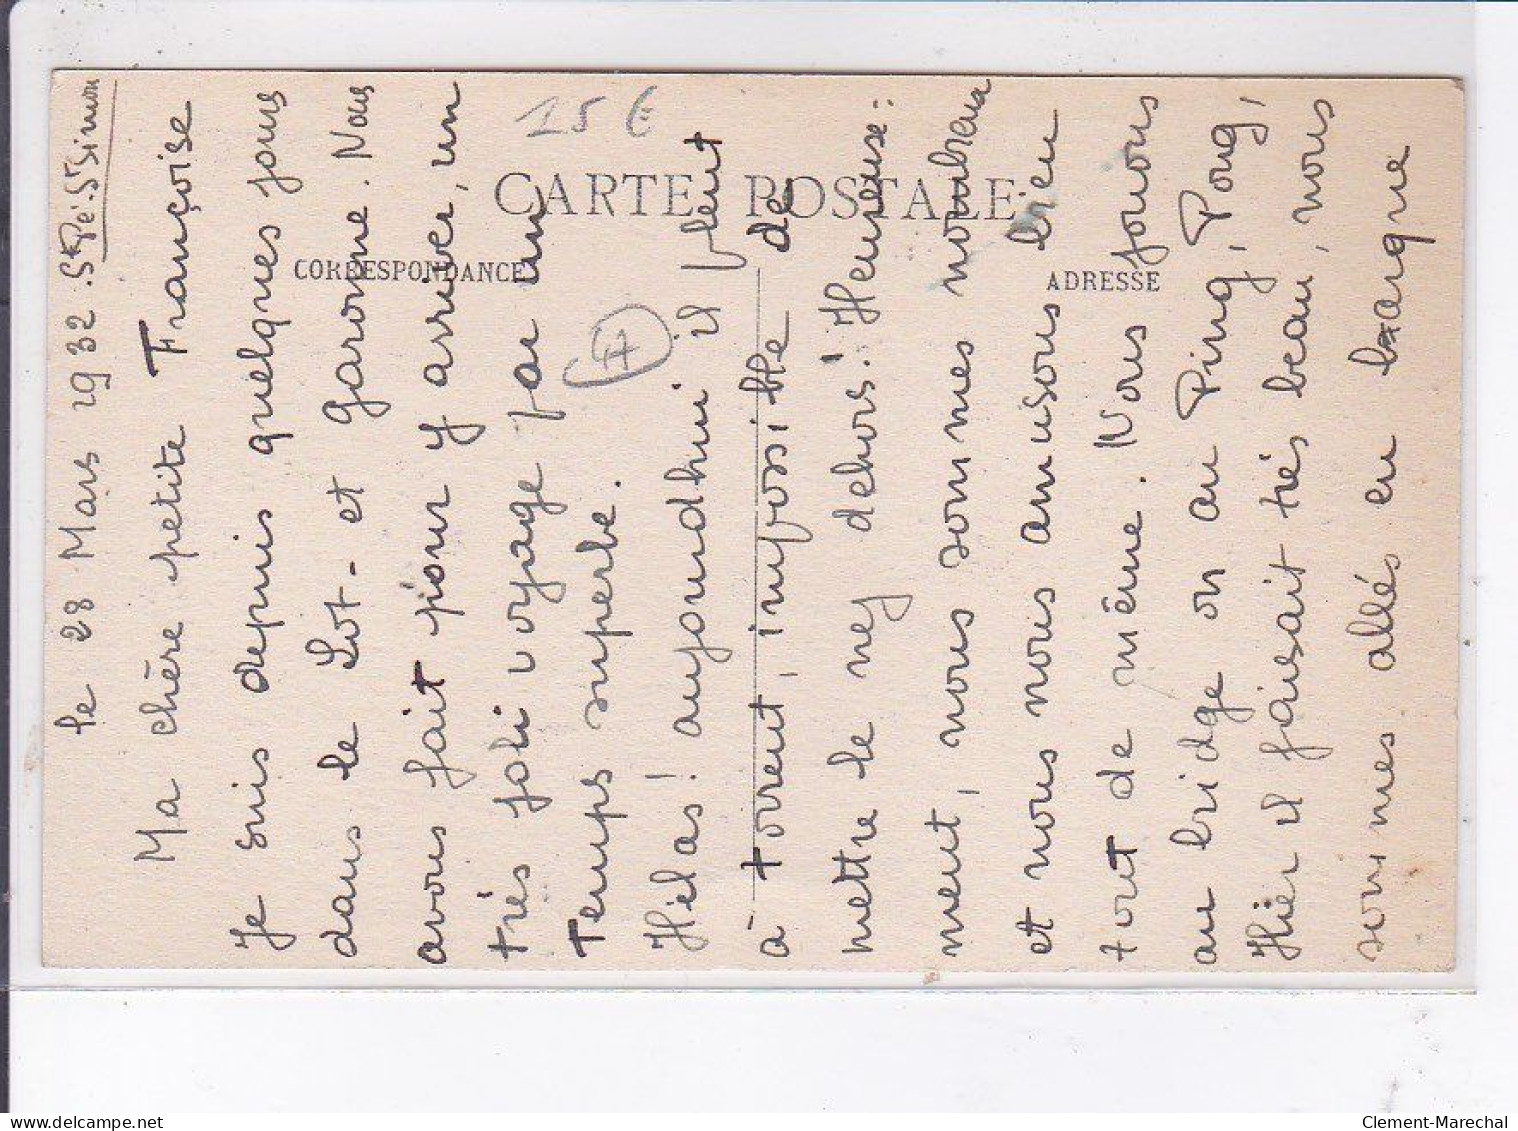 le 28 Mars 1932. St Pé. St Simon
Ma chère petite Françoise
Je suis depuis quelques jours
dans le Lot-et Garonne. Nous
avons fait pour y arriver, un
très joli voyage par un
temps superbe.
Hélas! aujourd'hui il pleut
à torrent, impossible de
mettre le nez dehors! Heureuse:
ment, nous sommes nombreux
et nous nous amusons bien
tout de même. Nous jouons
au bridge ou au Ping, Pong,
Hier il faisait très beau, nous
sommes allés en barque
15 €
CARTE POSTALE
CORRESPONDANCE
ADRESSE
Clement-Marechal